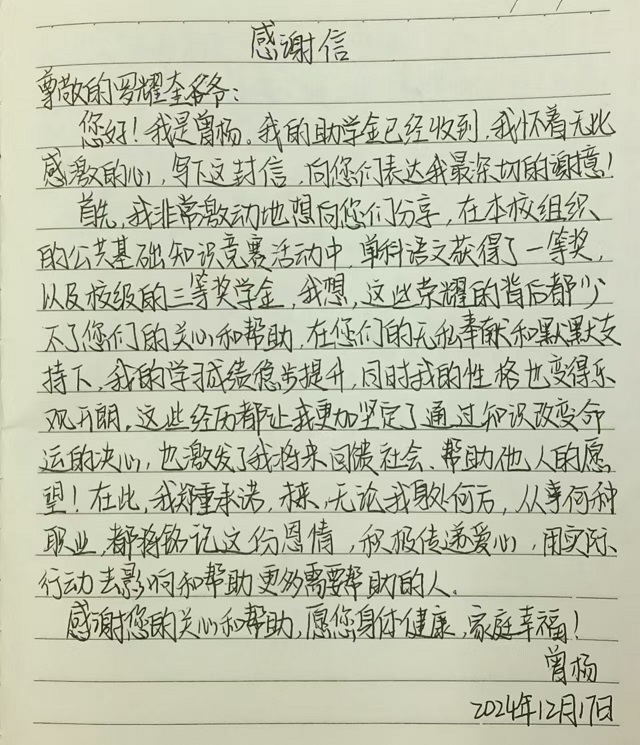 感谢信
尊敬的罗耀奎爷爷：
您好！我是曾杨。我的助学金已经收到，我怀着无比
感激的心，写下这封信，向您们表达我最深切的谢意！
首先，我非常激动地想向您们分享，在本校组织
的公共基础知识竞赛活动中，单科语文获得了一等奖，
以及校级的三等奖学金，我想，这些荣耀的背后都少
不了您们的关心和帮助，在您们的无私奉献和默默支
持下，我的学习成绩稳步提升，同时我的性格也变得乐
观开朗，这些经历都让我更加坚定了通过知识改变命
运的决心，也激发了我将来回馈社会、帮助他人的愿
望！在此，我郑重承诺，未来，无论我身处何方，从事何种
职业，都将铭记这份恩情，积极传递爱心，用实际
行动去影响和帮助更多需要帮助的人。
感谢您的关心和帮助，愿您身体健康，家庭幸福！
曾杨
2024年12月17日